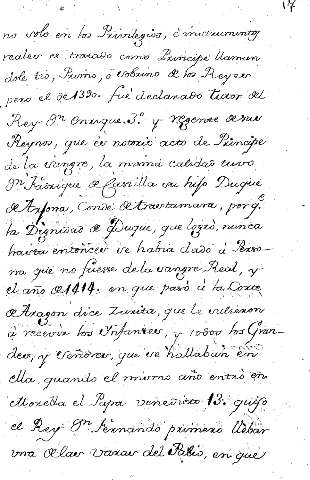 17
no solo en los Privilegios, é instrumentos
reales es tratado como Principe llaman
dole tio, Primo, ó sobrino de los Reyes
pero el de 1390. fué declarado tutor del
Rey Dn. Enrique 3º. y Regente de sus
Reynos, que es notorio acto de Principe
de la sangre, la misma calidad tuvo
Dn. Fadrique de Castilla su hijo Duque
de Arjona, Conde de Trastamara, porqe.
la Dignidad de Duque, que logró, nunca
hasta entonces se habia dado á Perso-
na que no fuesse de la sangre Real, y
el año de 1414. en que pasó á la Corte
de Aragon dice Zurita, que le salieron
á recevir los Infantes, y todos los Gran-
des, y Señores, que se hallaban en
ella, quando el mismo año entró en
Morella el Papa venedicto 13. quiso
el Rey Dn. Fernando primero llebar
una de las varas del Palio, en que